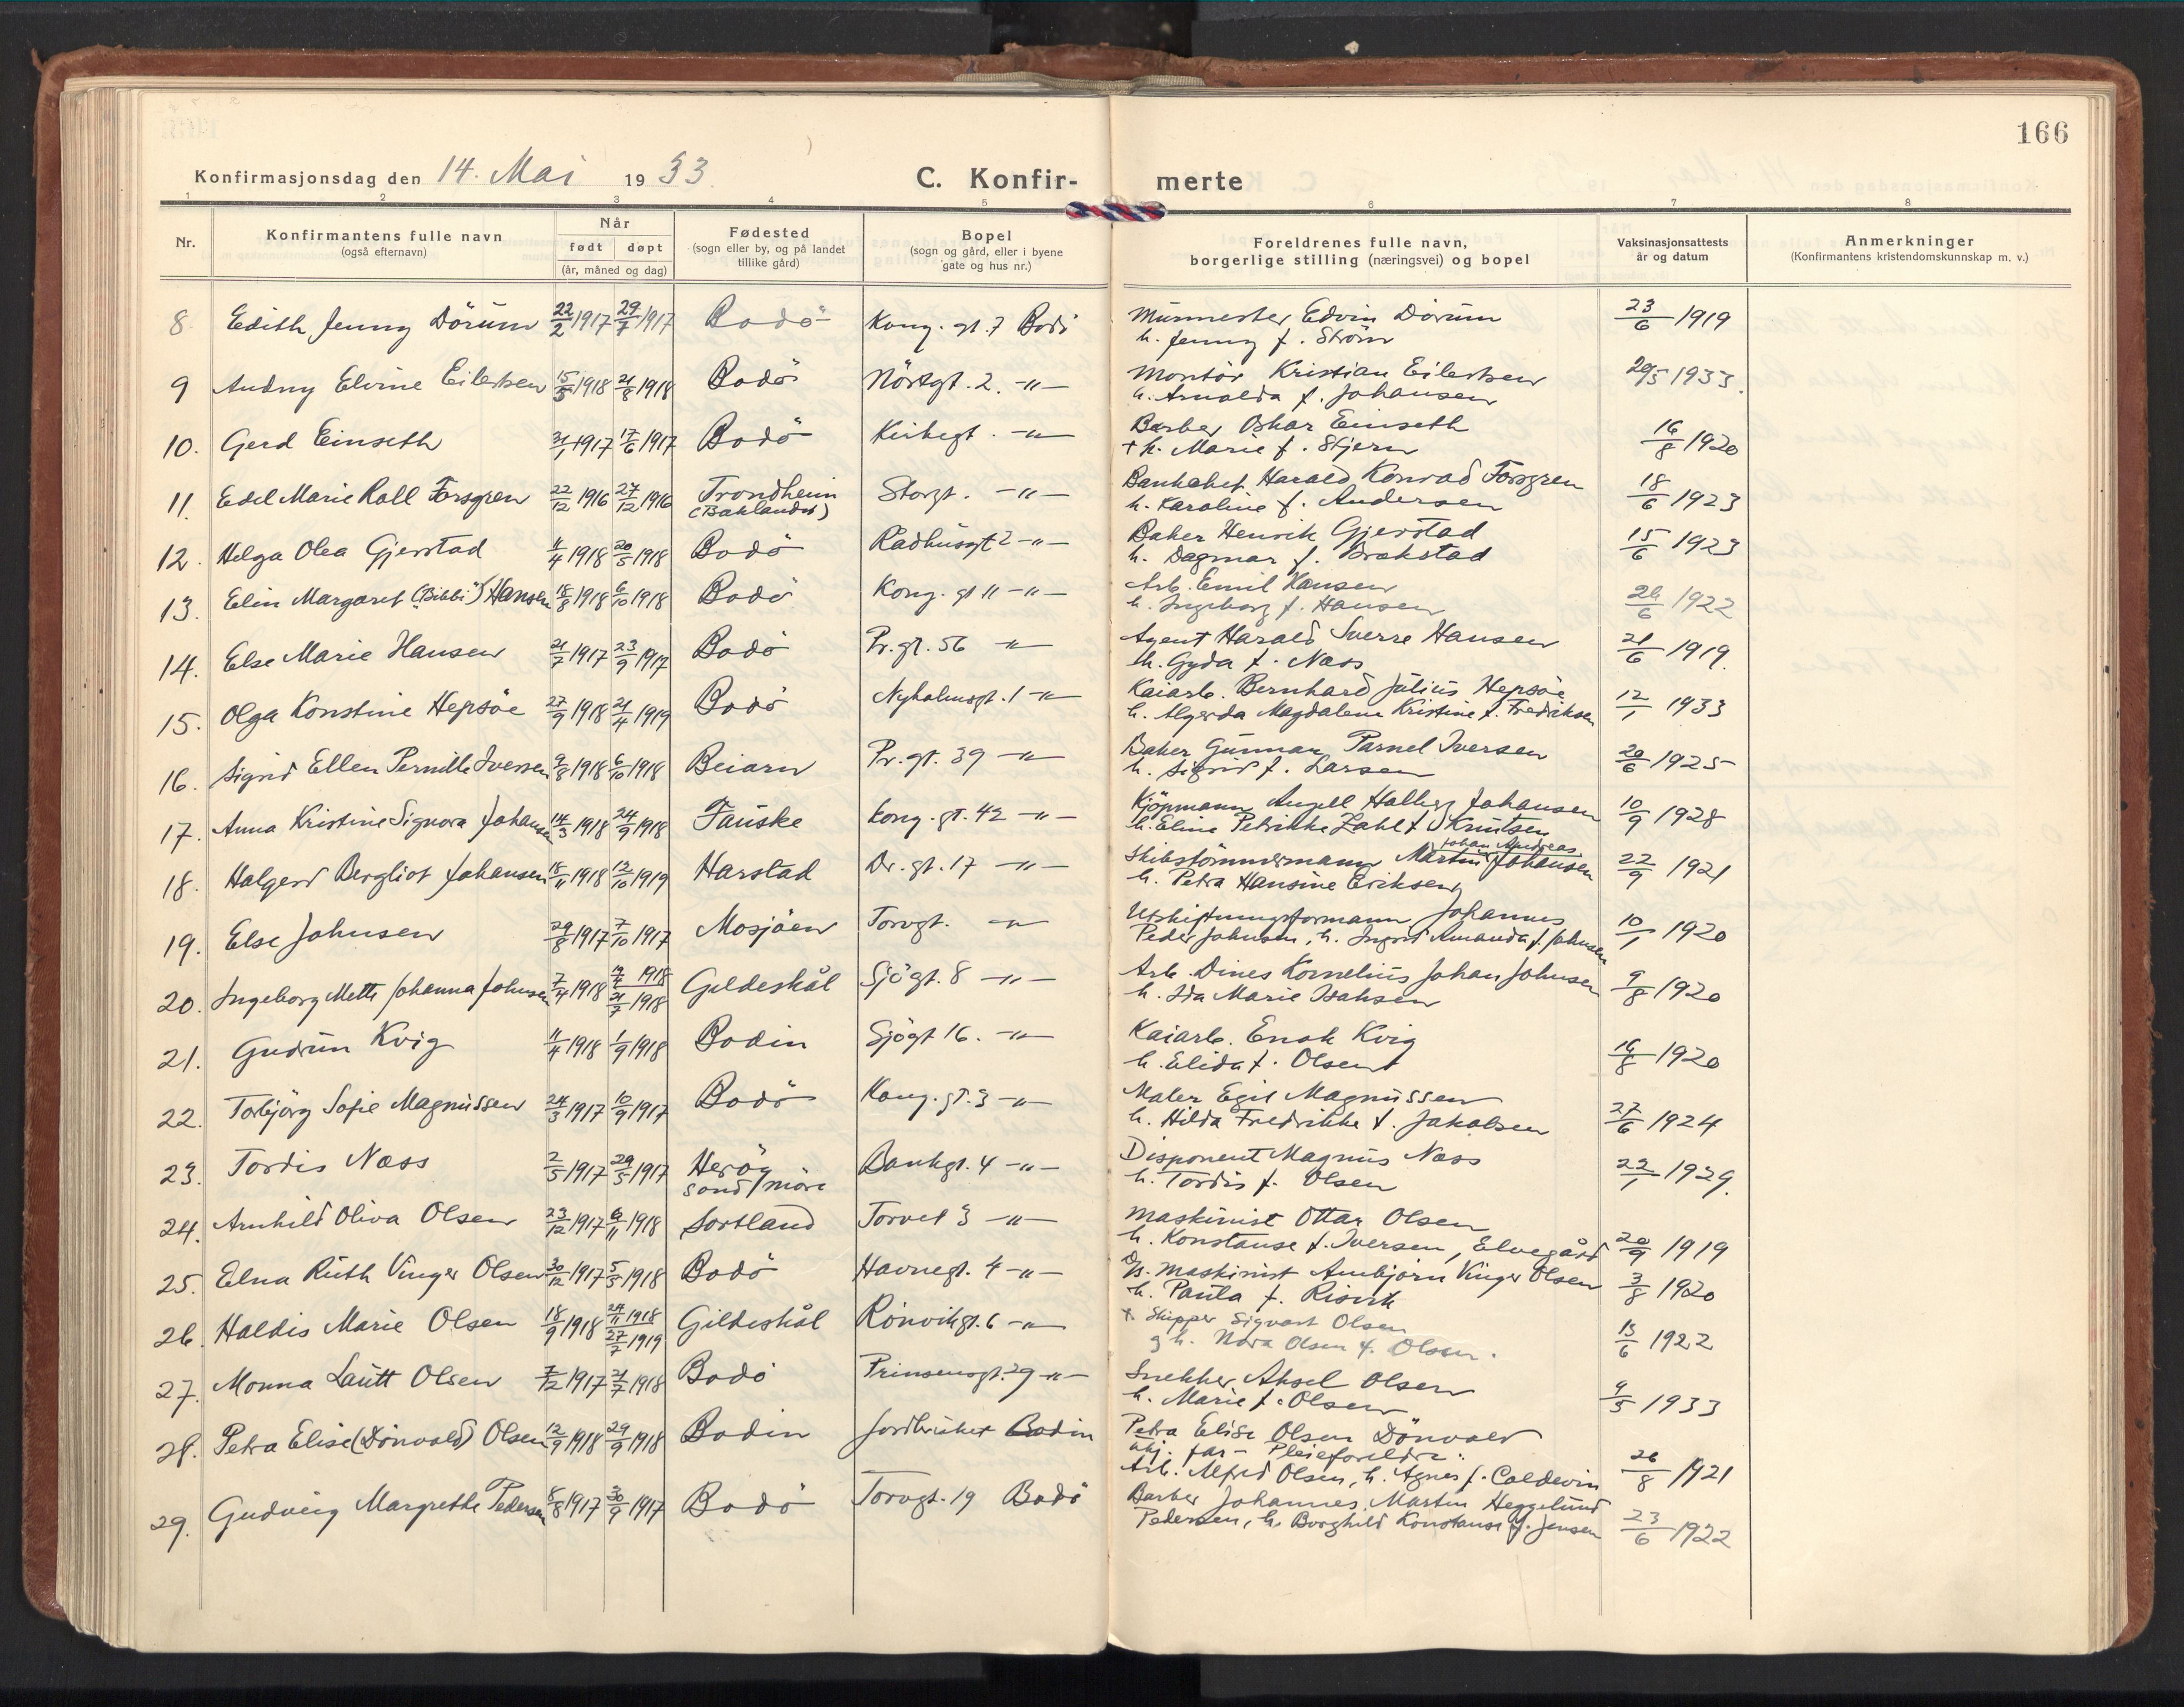 166
Konfirmasjonsdag den 14. Mai 1933.
C. Konfir- merte
1 2 3 4 5 6 7 8
Nr.
Konfirmantens fulle navn
(også efternavn)
Når
født døpt
(år, måned og dag)
Fødested
(sogn eller by, og på landet
tillike gård)
Bopel
(sogn og gård, eller i byene
gate og hus nr.)
Foreldrenes fulle navn,
borgerlige stilling (næringsvei) og bopel
Vaksinasjonsattests
år og datum
Anmerkninger
(Konfirmantens kristendomskunnskap m. v.)
8 Edith Jenny Dörum 22/2 1917 29/7 1917 Bodö Kong. gt. 7 Bodö Murmester Edvin Dörum 23/6 1919
h. Jenny f. Ström
9 Audny Elvine Eilertsen 15/5 1918 21/8 1918 Bodö 2. -"- Montör Kristian Eilertsen 29/5 1933.
h. Arnolda f. Johansen
10. Gerd Einseth 21/1 1917 17/6 1917 Bodö Kirkegt. -"- Barber Oskar Einseth 16/8 1920
+ h. Marie f. Stjern
11. Edel Marie Roll Forsgren 22/12 1916 27/12 1916 Trondheim Storgt. -"- Harald Konrad Forsgren 18/6 1923
(Baklandet) h. Karoline f. Andersen
12. Helga Olea Gjerstad 4/4 1918 20/5 1918 Bodö Rådhusgt 2 -"- Baker Henrik Gjerstad 15/6 1923
h. Dagmar f. Brækstad
13. Elin Margaret ("Bibbi") Hansen 18/8 1918 6/10 1918 Bodö Kong. gt 11 -"- Arb. Emil Hansen 26/6 1922
h. Ingeborg f. Hansen
14. Else Marie Hansen 21/7 1917 23/9 1917 Bodö Pr. gt. 56 -"- Agent Harald Sverre Hansen 21/6 1919.
h. Gyda f. Næss
15. Olga Konstine Hepsöe 27/9 1918 21/4 1919 Bodö Nyholmsgt. 1 -"- Kaiarb. Bernhard Julius Hepsöe 12/1 1933
h. Algerda Magdalene Kristine f. Fredriksen
16. Sigrid Ellen Pernille Iversen 9/8 1918 6/10 1918 Beiarn Pr. gt. 39 -"- Baker Gunnar Parnel Iversen 20/6 1925
h. Sigrid f. Larsen
17. Anna Kristine Signora Johansen 14/3 1918 24/9 1918 Fauske Kong. gt. 42 -"- Kjöpmann Angell Halberg Johansen 10/9 1928
h. Eline Petrikke Zahl f. Knutsen
18. Halgerd Bergliot Johansen 18/11 1918 12/10 1919 Harstad Dr. gt. 17 -"- Skibstömmermann Martin Johan Andreas Johansen 22/9 1921
h. Petra Hansine Eriksen
19. Else Johnsen 29/8 1917 7/10 1917 Mosjöen Torvgt. -"- Utskiftningsformann Johannes 10/1 1920
Peder Johnsen, h. Ingrid Amanda f. Johnsen
20. Ingeborg Mette Johanna Johnsen 7/4 1918 1918 21/7 1918 Gildeskål Sjögt. 8 -"- Arb. Dines Kornelius Johan Johnsen 9/8 1920
h. Ida Marie Isaksen
21. Gudrun Kvig 11/4 1918 1/9 1918 Bodin Sjögt 16. -"- Kaiarb. Enok Kvig 16/8 1920
h. Elida f. Olsen
22. Torbjörg Sofie Magnussen 24/3 1917 10/9 1917 Bodö Kong. gt. 3 -"- Maler Egil Magnussen 27/6 1924
h. Hilda Fredrikke f. Jakobsen
23. Tordis Næss 2/5 1917 29/5 1917 Heröy Bankgt. 4 -"- Disponent Magnus Næss 22/1 1929.
Sond/möre h. Tordis f. Olsen
24. Arnhild Oliva Olsen 23/12 1917 6/11 1918 Sortland Torvet 3 -"- Maskinist Ottar Olsen 20/9 1919
h. Konstanse f. Iversen, Elvegård
25. Edna Ruth Vinger Olsen 30/12 1917 5/5 1918 Bodö Havnegt. 4 -"- Ds. Maskinist Arnbjörn Vinger Olsen 3/8 1920
h. Paula f. Risvik
26. Haldis Marie Olsen 18/9 1918 24/11 1918 27/7 1919 Gildeskål Rönvikgt. 6 -"- + Skipper Sigvart Olsen 15/6 1922
g h. Nora Olsen f. Olsen.
27. Monna Lautt Olsen 7/12 1917 21/7 1918 Bodö Prinsensgt. 29 -"- Snekker Aksel Olsen 9/5 1933
h. Marie f. Olsen
28. Petra Elise (Dönvold) Olsen 12/9 1918 29/9 1918 Bodin Jordbruket Bodin Petra Elise Olsen Dönvold
ukj. far - Pleieforeldre:
Arb. Alfred Olsen, h. Agnes f. Coldevin 26/8 1921
29. Gudveig Margrethe Pedersen 8/8 1917 30/9 1917 Bodö Torvgt. 19 Bodö Barber Johannes Martin Heggelund
Pedersen, h. Borghild Konstanse f. Jensen 23/6 1922